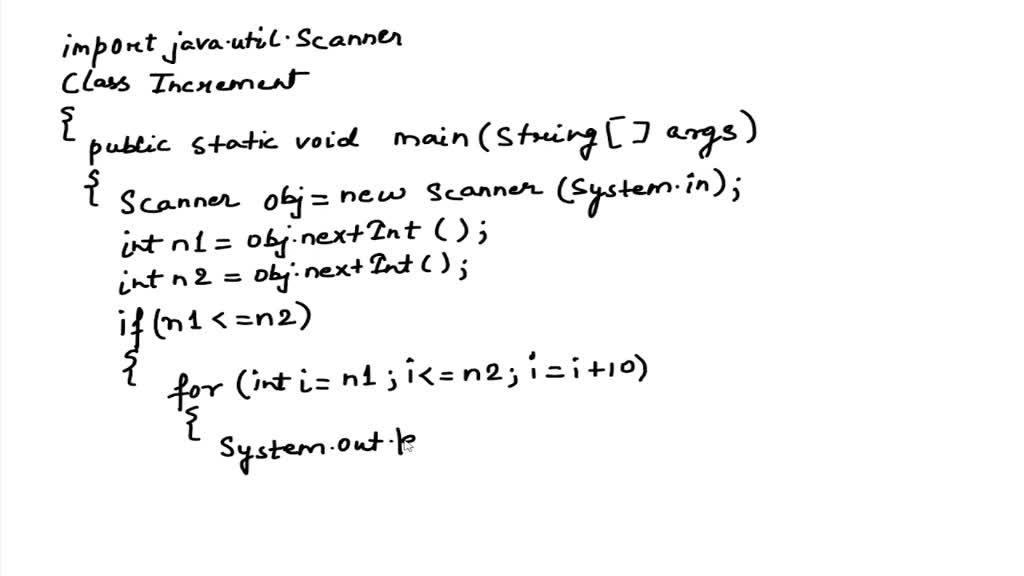 import java.util.Scanner
Class Increment
{
public static void main(String[] args)
{ Scanner obj = new Scanner (System.in);
int n1 = obj.nextInt ();
int n2 = obj.nextInt();
if (n1 <= n2)
{
for (int i = n1 ; i <= n2 ; i = i + 10)
{
System.out.p